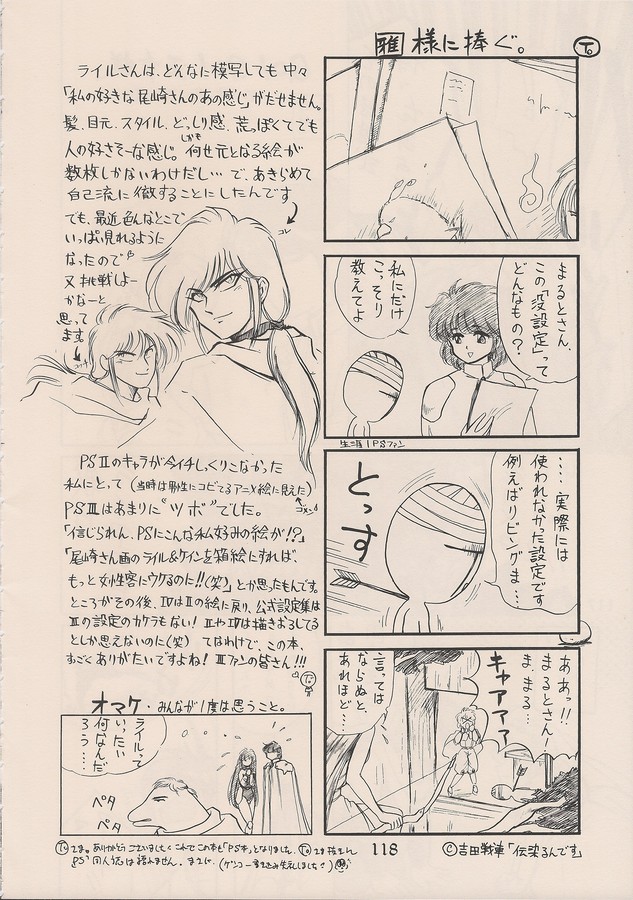 雅様に捧ぐ。
To
まるとさん、
この「没設定」って
どんなもの?
私にだけ
こっそり
教えてよ
生涯1PSファン
‥‥実際には
使われなかった設定です
例えばリビングま…
とっす
ああっ!!
まるとさん!
ま、まる…
キャアアアア
言っては
ならぬと、
あれほど…
©吉田戦車「伝染るんです」
ライルさんは、どんなに模写しても中々
「私の好きな尾崎さんのあの感じ」がだせません。
髪、目元、スタイル、どっしり感、荒っぽくてでも
人の好さそーな感じ。しかも何せ元となる絵が
数枚しかないわけだし…で、あきらめて
自己流に徹することにしたんです
コレ
でも、最近色んなとこで
いっぱい見れるように
なったので
又挑戦しよー
かなーと
思って
ます。
PSⅡのキャラが今イチしっくりこなかった
私にとって(当時は男性にコビてるアニメ絵に見えた)
PSⅢはあまりに"ツボ"でした。
「信じられん、PSにこんな私好みの絵が!?」
「尾崎さん画のライル&ケインを箱絵にすれば、
もっと女性客にウケるのに!!(笑)」とか思ったもんです。
ところがその後、ⅣはⅡの絵に戻り、公式設定集は
Ⅲの設定のカケラもない!ⅡやⅣは描きおろしてる
としか思えないのに(笑) てなわけで、この本、
すごくありがたいですよね!Ⅲファンの皆さん!!!
To
オマケ・みんなが1度は思うこと。
ライルって
いったい
何なんだ
ろう…
ペタ
ペタ
118